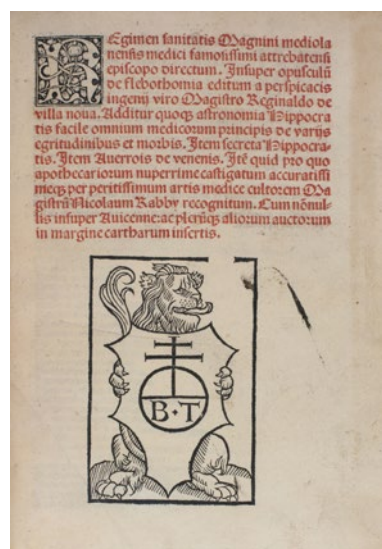 REgimen sanitatis Magnini mediola
nensis medici famosissimi attrebatensi
episcopo directum. Insuper opusculū
de flebothomia editum a perspicacis
ingenij viro Magistro Reginaldo de
villa noua. Additur quoqꝫ astronomia Hippocra
tis facile omnium medicorum principis de varijs
egritudinibus et morbis. Item secreta Hippocra-
tis. Item Auerrois de venenis. Itē quid pro quo
apothecariorum nuperrime castigatum accuratissi
meqꝫ per peritissimum artis medice cultorem Ma
gistrū Nicolaum Rabby recognitum. Cum nōnul-
lis insuper Auicenne: ac plerūqꝫ aliorum auctorum
in margine cartharum insertis.
B·T